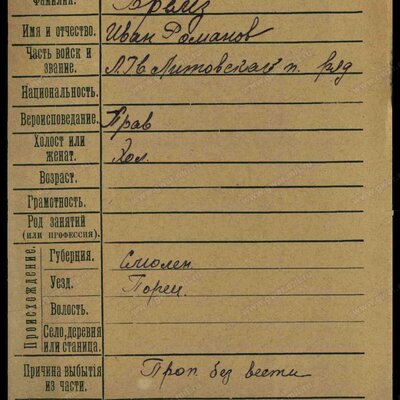 Фамилия.
Имя и отчество. Иван Романов
Часть войск и
звание. Л Гв Литовскаго п. ряд
Национальность.
Вероисповедание. Прав
Холост или
женат. Хол.
Возраст.
Грамотность.
Род занятий
(или профессия).
Происхождение:
Губерния. Смолен.
Уезд. Пореч.
Волость.
Село, деревня
или станица.
Причина выбытія
из части. Проп без вести